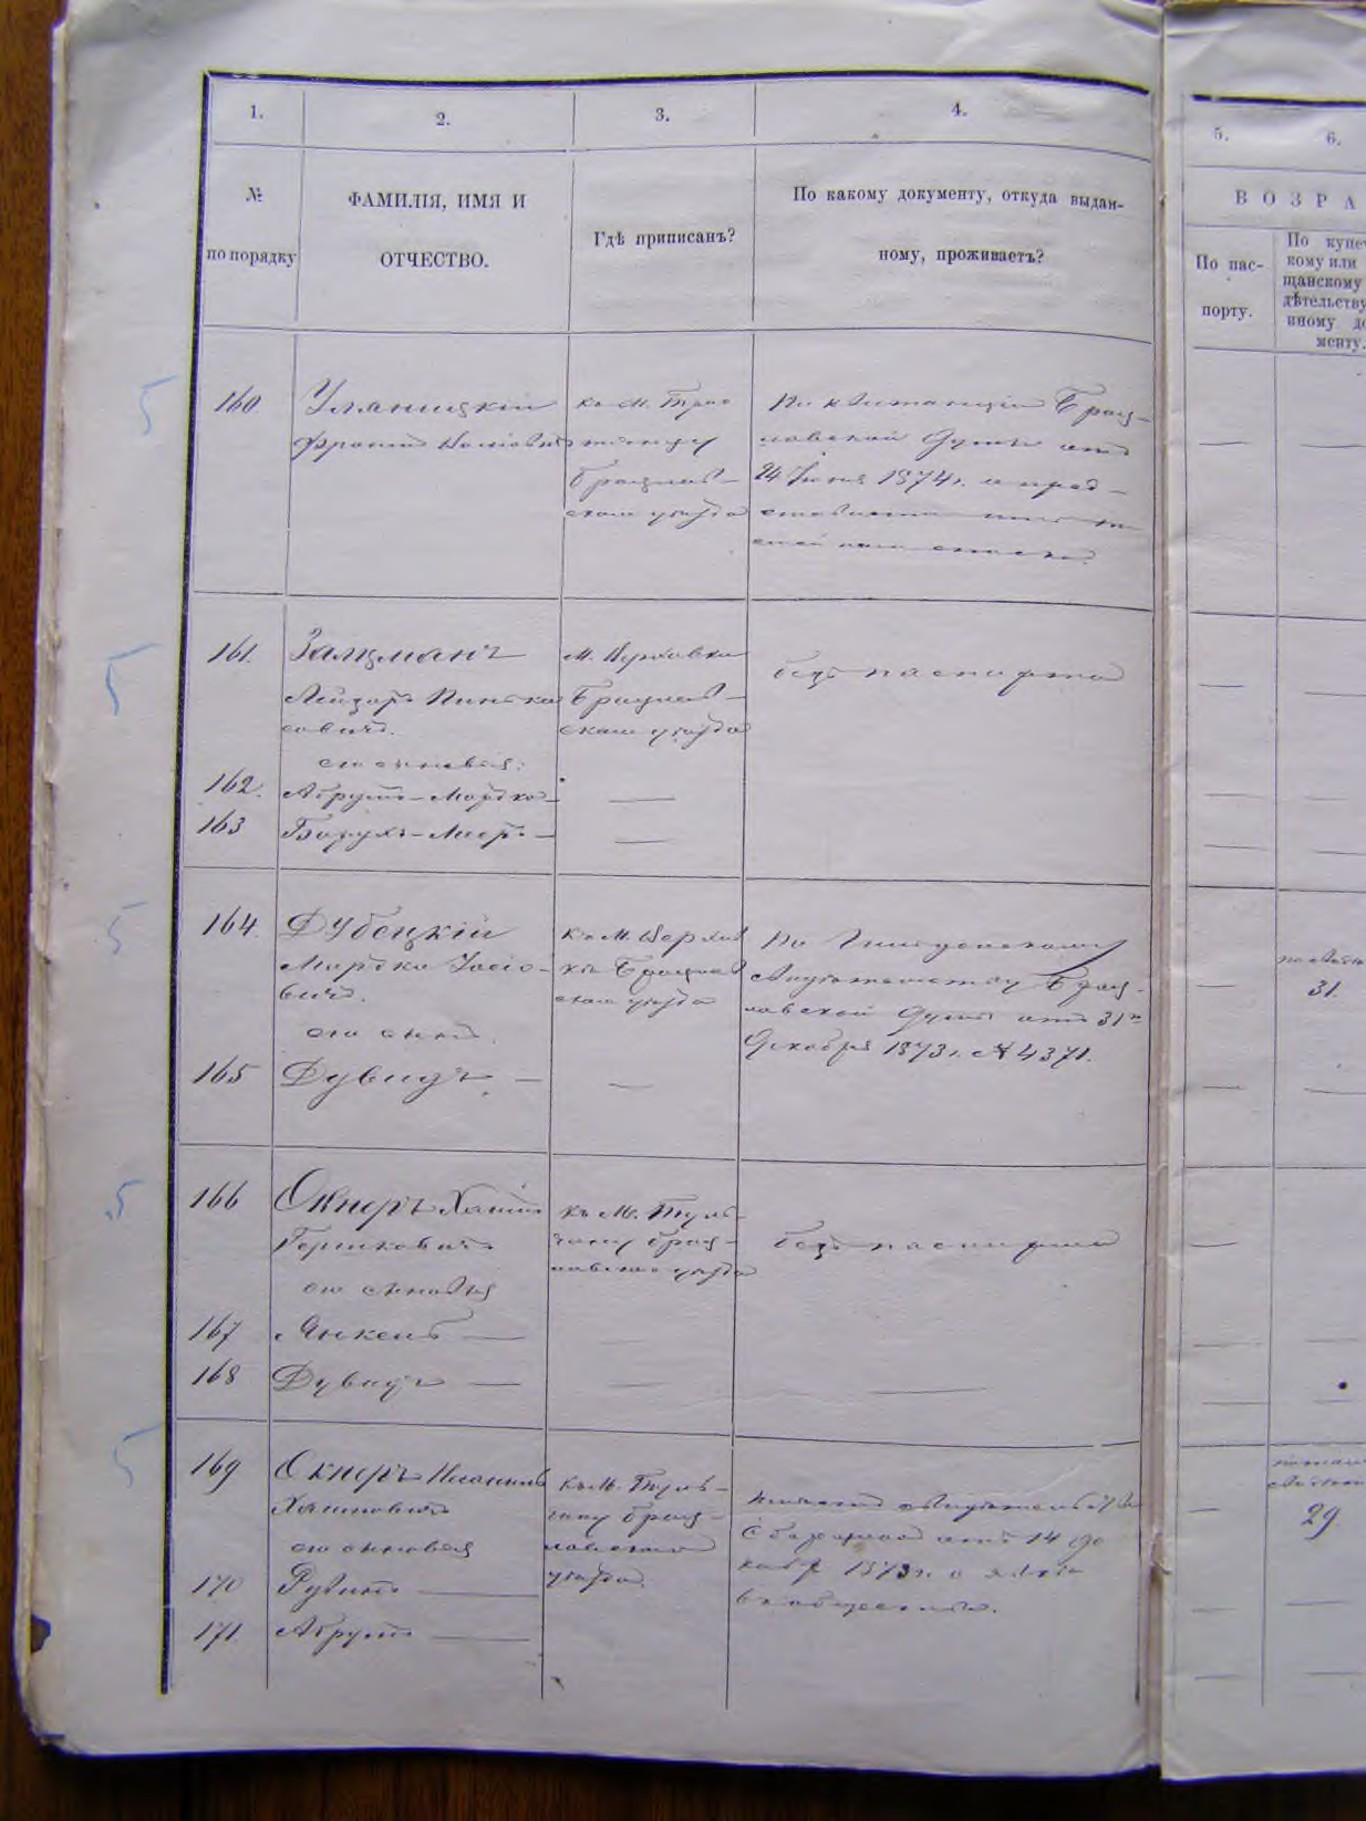 1.
2.
3.
4.
5.
6.
№
по порядку
ФАМИЛІЯ, ИМЯ И
ОТЧЕСТВО.
Гдѣ приписанъ?
По какому документу, откуда выдан-
ному, проживаетъ?
ВОЗРА
По пас-
порту.
По купеч
кому или
щанскому
дѣтельству
иному до
менту.
5
160
Уланицкій
къ М.
Брацлав-
скаго уѣзда
По квитанціи Брац-
лавской Думы отъ
24 Іюня 1874 г.
5
161.
Залцманъ
Лейзоръ Пинхa
совичъ.
его сыновья:
М. Верховка
Брацлав-
скаго уѣзда
безъ паспорта
162.
Абрумъ-Мордко
163
Борухъ-Меръ
5
164.
Дубецкій
Мордко Іосіо-
вичъ.
его сынъ.
къ М. Верхов
кѣ Брацлав
скаго уѣзда
По
свидѣтельству Брац-
лавской Думы отъ 31го
Декабря 1873 г. № 4371.
31.
165
Дувидъ
5
166
Окнеръ Хаимъ
Гершковичъ
его сыновья
къ М. Туль-
чину Брац-
лавскаго уѣзда
безъ паспорта
167
Янкель
168
Дувидъ
5
169
Окнеръ
Хаимовичъ
его сыновья
къ М. Туль-
чину Брац-
лавскаго
уѣзда.
свидѣтельство
отъ 14 Де
кабр 1873 г. о явкѣ
29.
170
Рувинъ
171.
Абрумъ